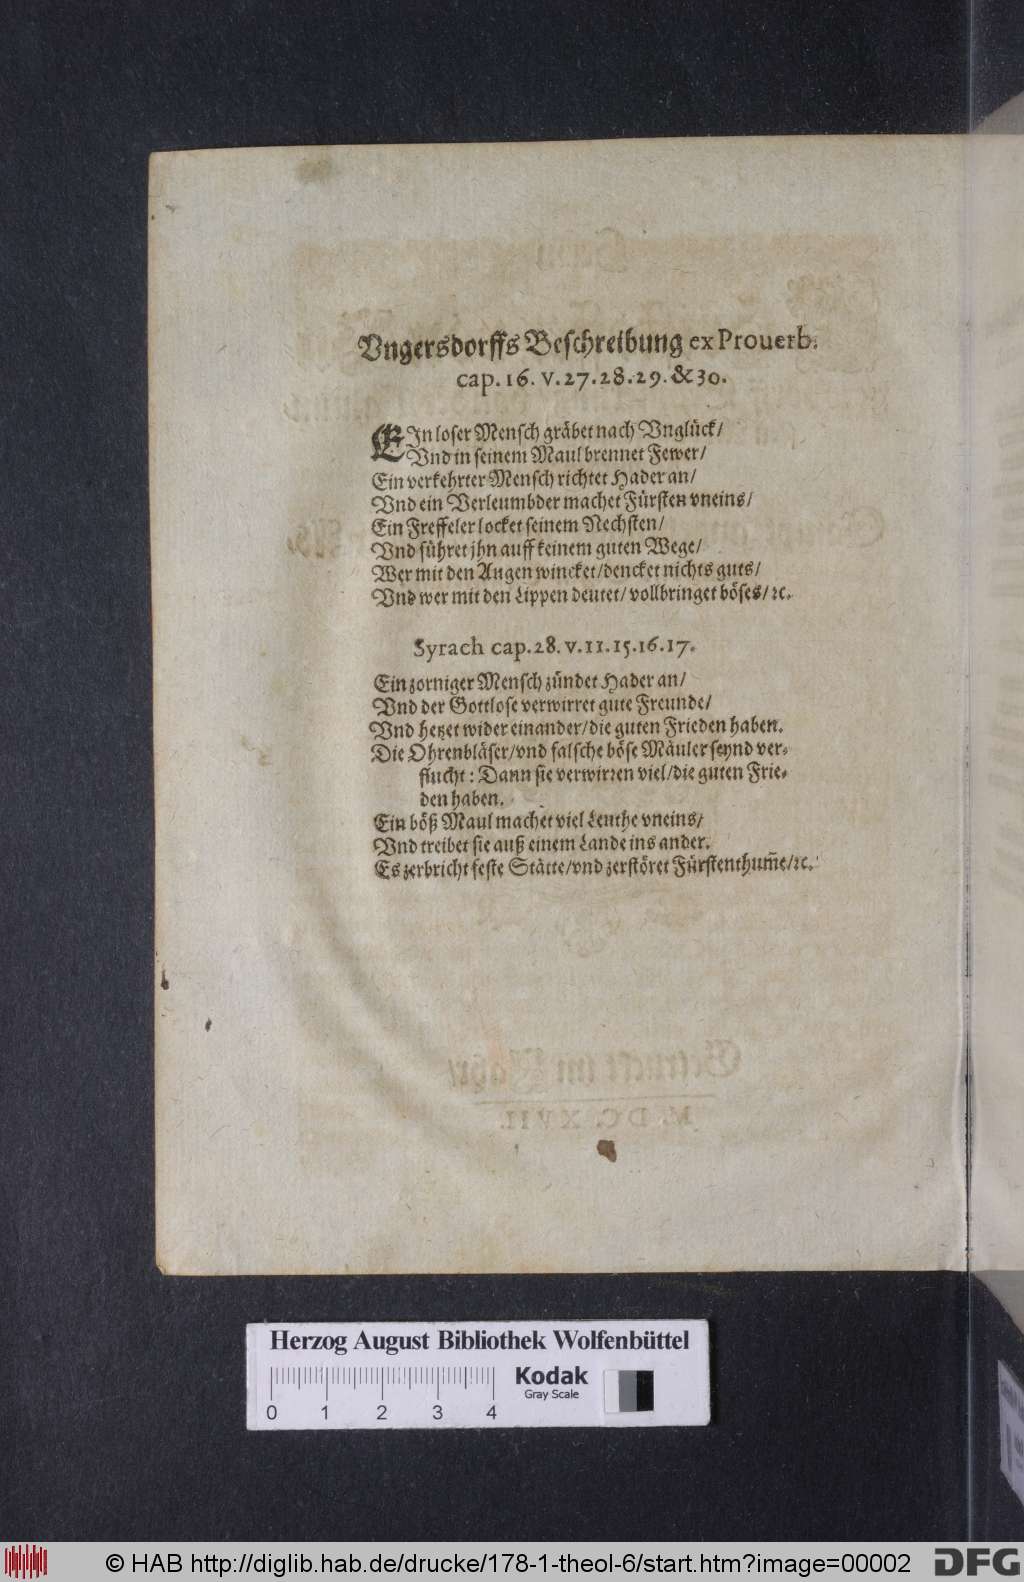 Vngersdorffs Beschreibung ex Prouerb.
cap. 16. v. 27. 28. 29. & 30.
EIn loser Mensch gräbet nach Vnglück/
Vnd in seinem Maul brennet Fewer/
Ein verkehrter Mensch richtet Hader an/
Vnd ein Verleumbder machet Fürsten vneins/
Ein Freffeler locket seinem Nechsten/
Vnd führet jhn auff keinem guten Wege/
Wer mit den Augen wincket/dencket nichts guts/
Vnd wer mit den Lippen deutet/ vollbringet böses/ꝛc.
Syrach cap. 28. v. 11. 15. 16. 17.
Ein zorniger Mensch zündet Hader an/
Vnd der Gottlose verwirret gute Freunde/
Vnd hetzet wider einander/die guten Frieden haben.
Die Ohrenbläser/vnd falsche böse Mäuler seynd ver-
flucht: Dann sie verwirren viel/die guten Frie-
den haben.
Ein böß Maul machet viel Leuthe vneins/
Vnd treibet sie auß einem Lande ins ander.
Es zerbricht feste Stätte/vnd zerstöret Fürstenthum̃e/ꝛc.
Getruckt im Jahr/
M. DC. XVII.
Herzog August Bibliothek Wolfenbüttel
Kodak
Gray Scale
0 1 2 3 4
© HAB http://diglib.hab.de/drucke/178-1-theol-6/start.htm?image=00002
DFG